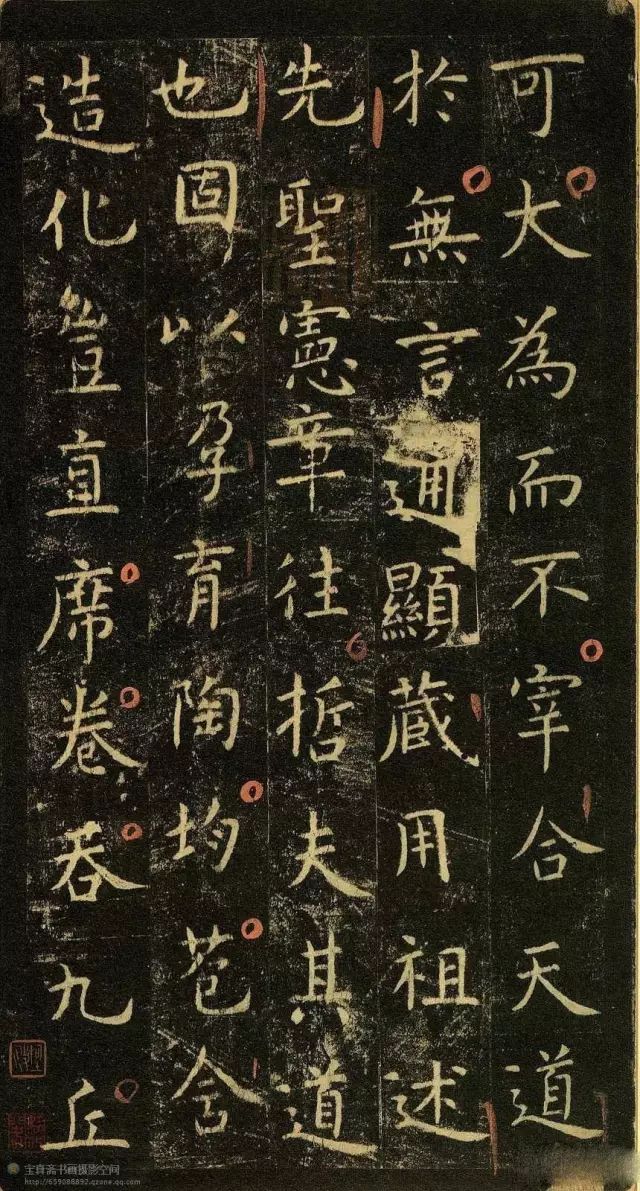 可大為而不宰合天道
於無言通顯藏用祖述
先聖憲章往哲夫其道
也固以孕育陶均苞含
造化豈直席卷吞九丘
宝真斋书画摄影空间
http://659088892.qzone.qq.com